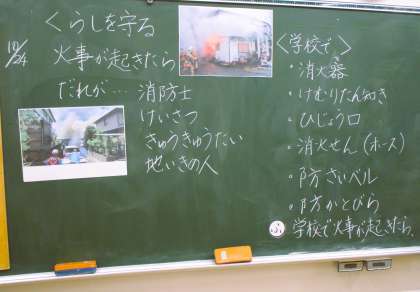 10/24
くらしを守る
火事が起きたら
だれが… 消防士
けいさつ
きゅうきゅうたい
地いきの人
<学校で>
・消火器
・けむりたん知き
・ひじょう口
・消火せん(ホース)
・防さいベル
・防かとびら
ふ 学校で火事が起きたら、